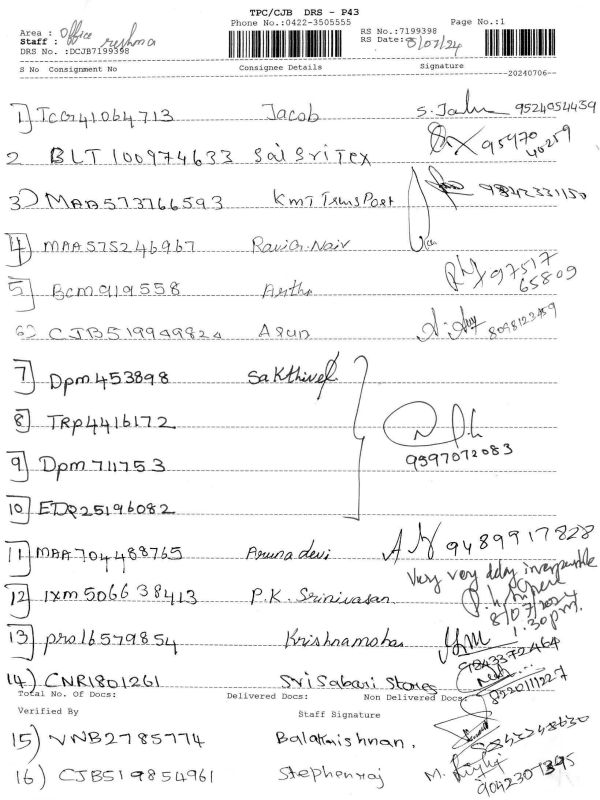 TPC/CJB DRS - P43
Phone No.:0422-3505555 Page No.:1
Area : Office RS No.:7199398
Staff : reshma RS Date: 8/07/24
DRS No. :DCJB7199398
S No Consignment No Consignee Details Signature
20240706
1] TCG41064713 Jacob 9524054439
2 BLT 100974633 Sai Sri Tex 95970 40259
3) MAA573766593 KMT TransPort 9842331150
4] MAA575246967 Ravich Nair
5] BCM919558 Artha 97517 65809
6) CJB519949824 Asun 8098123459
7] Dpm 453898 Sakthivel
8] TRP4416172
9] Dpm 711753 9597072083
10] EDR25196082
11] MAA704488765 Aruna devi 9489917828
Very very delay
12] ixm 506638413 P.K. Srinivasan 8/07/2024
1.30pm.
13] pro16579854 Krishnamohan 9843372464
14) CNR1801261 Sri Sabari Stores 8220111227
Total No. Of Docs: Delivered Docs: Non Delivered Docs:
Verified By Staff Signature
15) VNB2785774 Balakrishnan.
16) CJB519854961 Stephenraj 9042307395